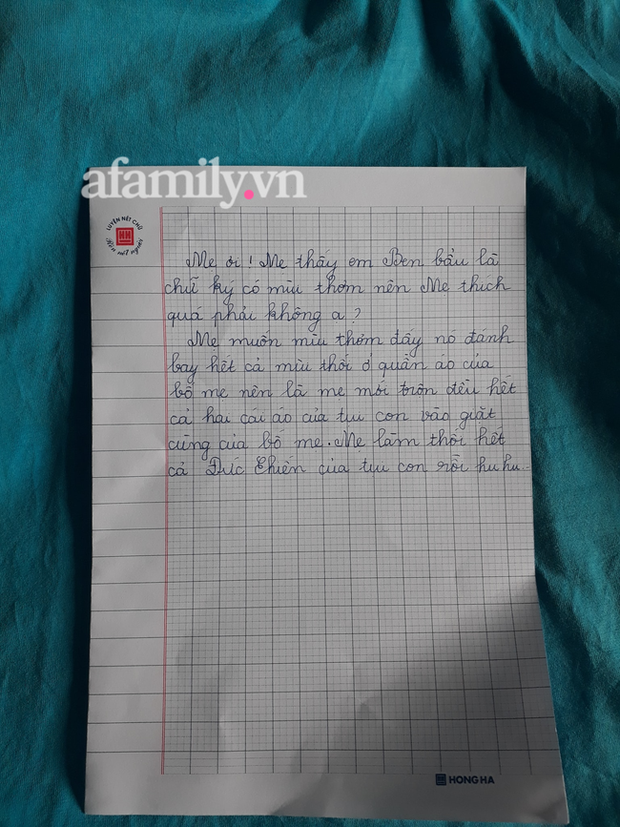 afamily.vn
LUYỆN NÉT CHỮ
RÈN NẾT NGƯỜI
HH
Mẹ ơi! Mẹ thấy em Ben bẩu là
chữ ký có mìu thơm nên Mẹ thích
quá phải không ạ?
Mẹ muốn mìu thơm đấy nó đánh
bay hết cả mìu thối ở quần áo của
bố mẹ nên là mẹ mới trộn đều hết
cả hai cái áo của tụi con vào giặt
cùng của bố mẹ. Mẹ làm thối hết
cả Đức Chiến của tụi con rồi hu hu..
HH HONG HA